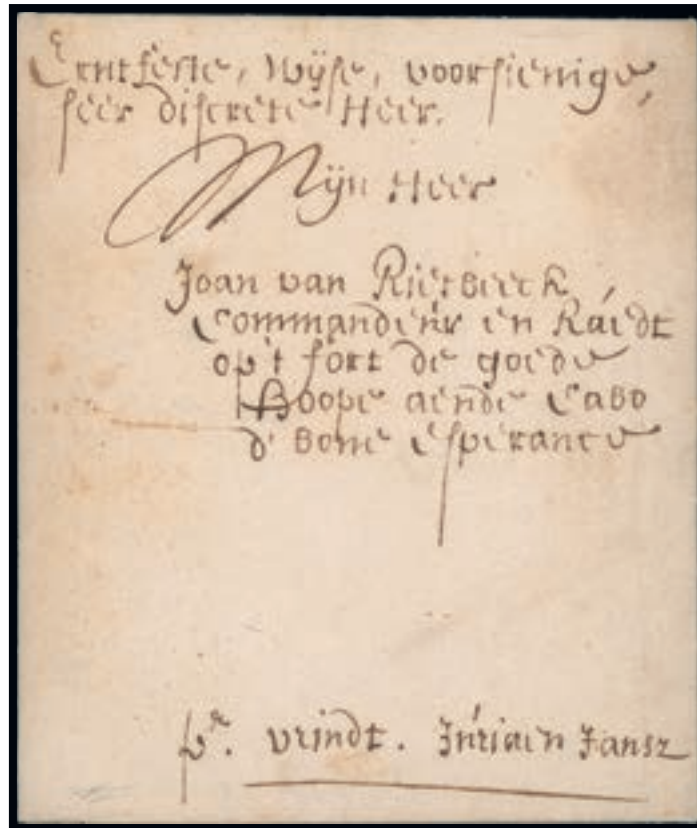 Erntfeste, wijse, voorsienige,
seer discrete Heer.
Mijn Heer
Joan van Rietbeeck,
Commandeúr en Raedt
op't fort de goede
Hoope aende Cabo
d' bone esperance
pr. vrindt. Júriaen Jansz